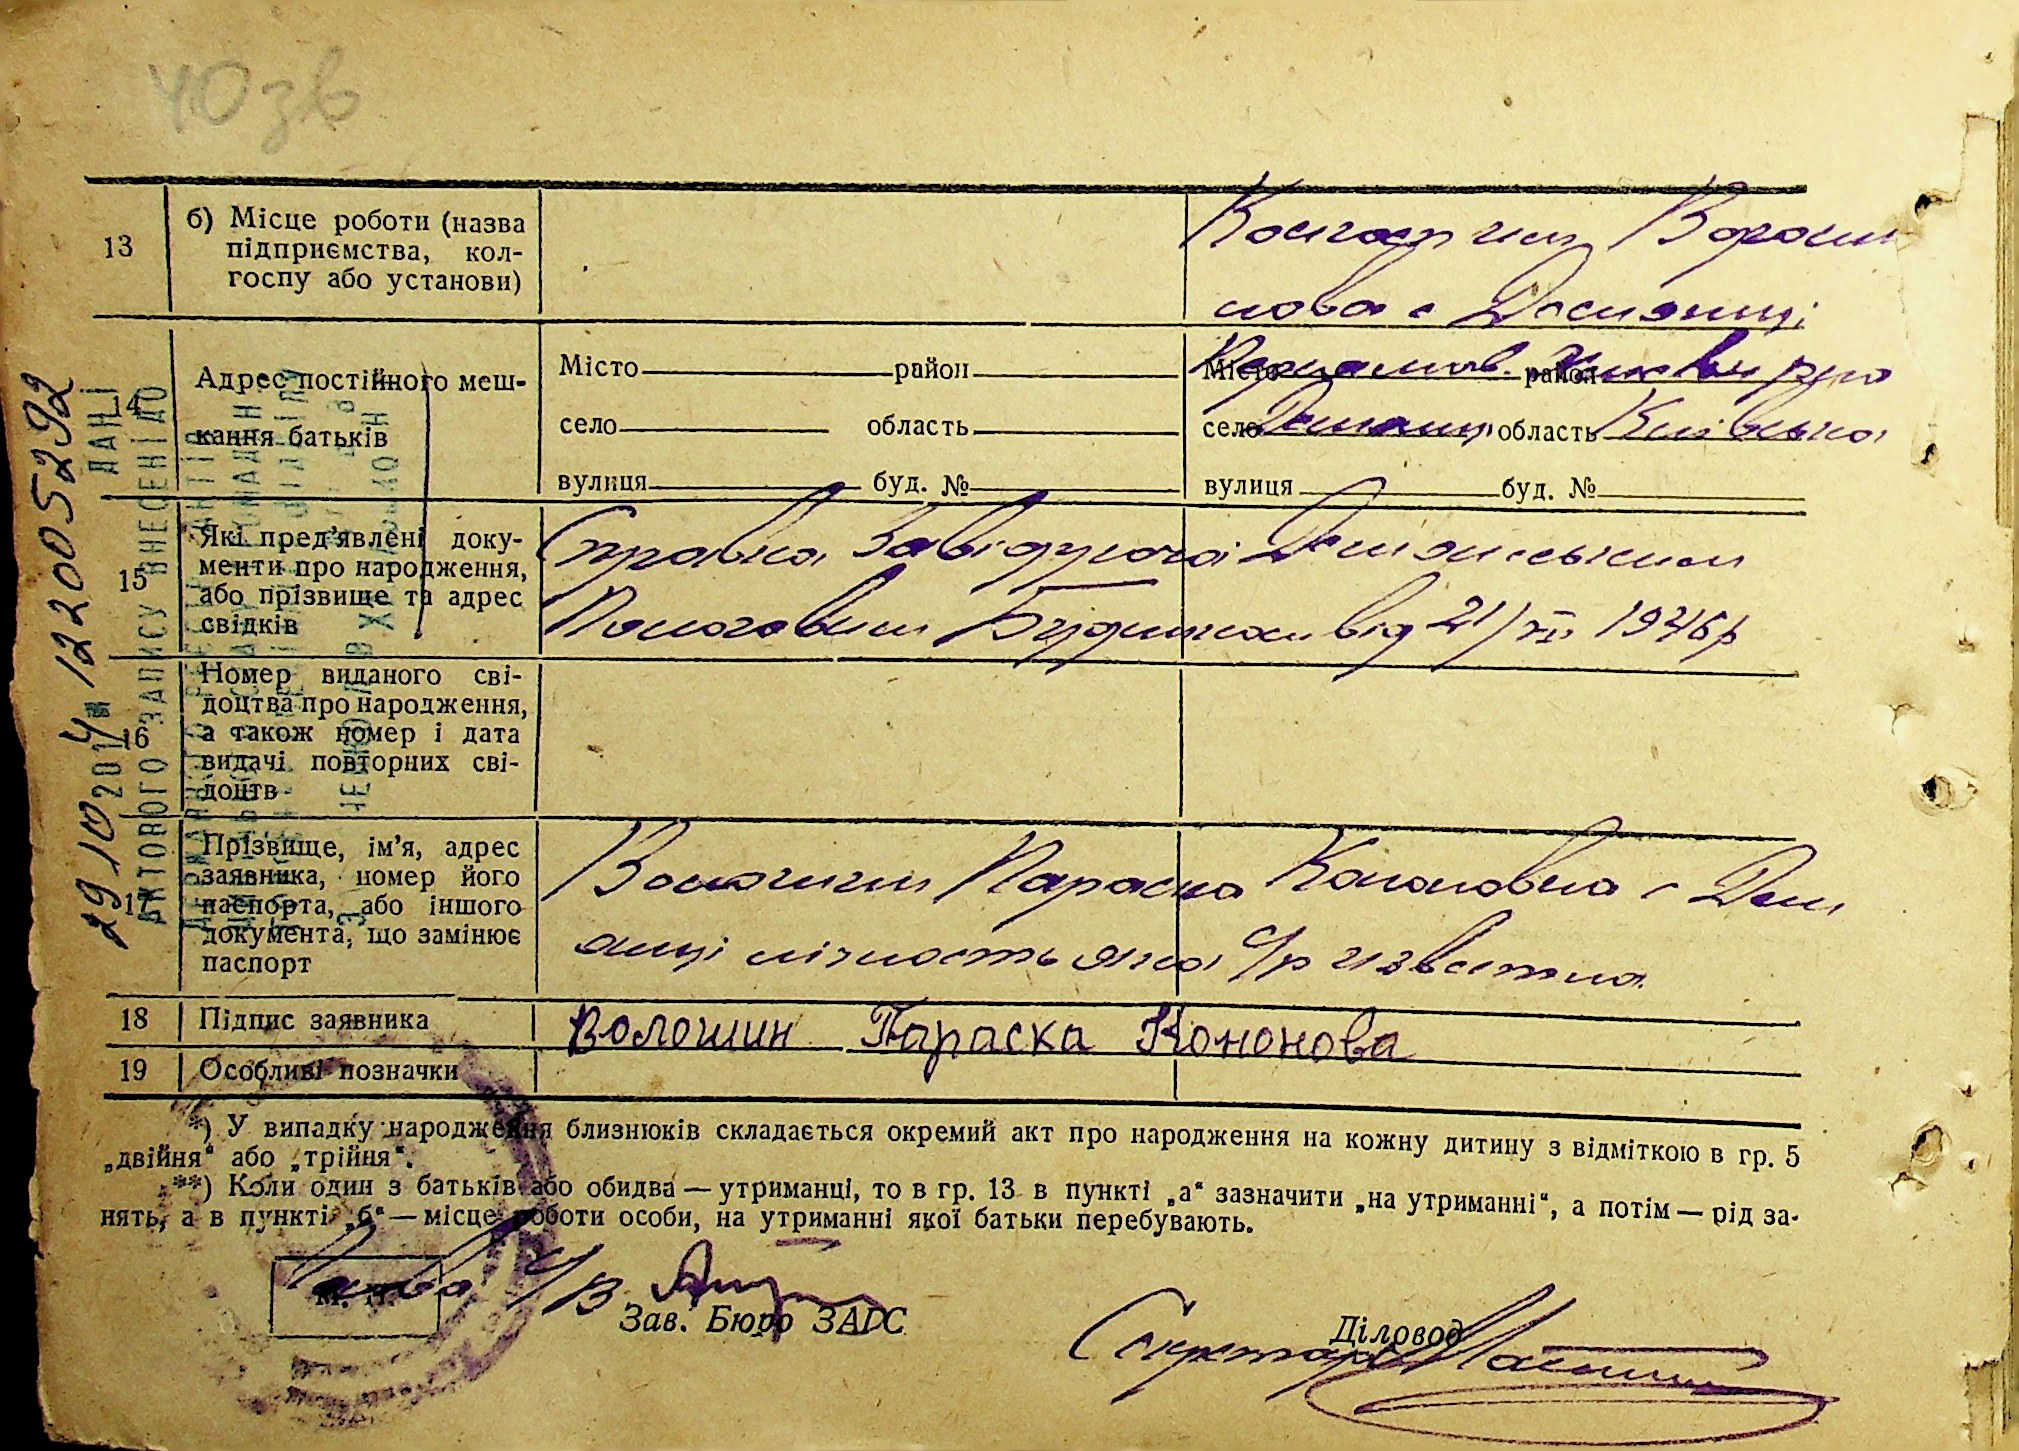 40 зв
13
б) Місце роботи (назва
підприємства, кол-
госпу або установи)
Колгосп им Вороши
лова с Дем'янці
14
Адрес постійного меш-
кання батьків
Місто район
село область
вулиця буд. №
Місто район
село Дем'янці область Київська
вулиця буд. №
15
Які пред'явлені доку-
менти про народження,
або прізвище та адрес
свідків
Справка Завідуючої Дем'янським
Пологовим Будинком від 21/XII 1946р
16
Номер виданого сві-
доцтва про народження,
а також номер і дата
видачі повторних сві-
доцтв
17
Прізвище, ім'я, адрес
заявника, номер його
паспорта, або іншого
документа, що замінює
паспорт
Волошин Параска Кононовна с Дем
янці лічность яка с/р известна
18
Підпис заявника
Волошин Параска Кононова
19
Особливі позначки
*) У випадку народження близнюків складається окремий акт про народження на кожну дитину з відміткою в гр. 5
„двійня“ або „трійня“.
**) Коли один з батьків або обидва — утриманці, то в гр. 13 в пункті „а“ зазначити „на утриманні“, а потім — рід за-
нять, а в пункті „б“ — місце роботи особи, на утриманні якої батьки перебувають.
М. П.
Голова
Зав. Бюро ЗАГС
Діловод
Секретар
29 10 2014 12200 5292
ДАНІ
АКТОВОГО ЗАПИСУ ВНЕСЕНІ ДО